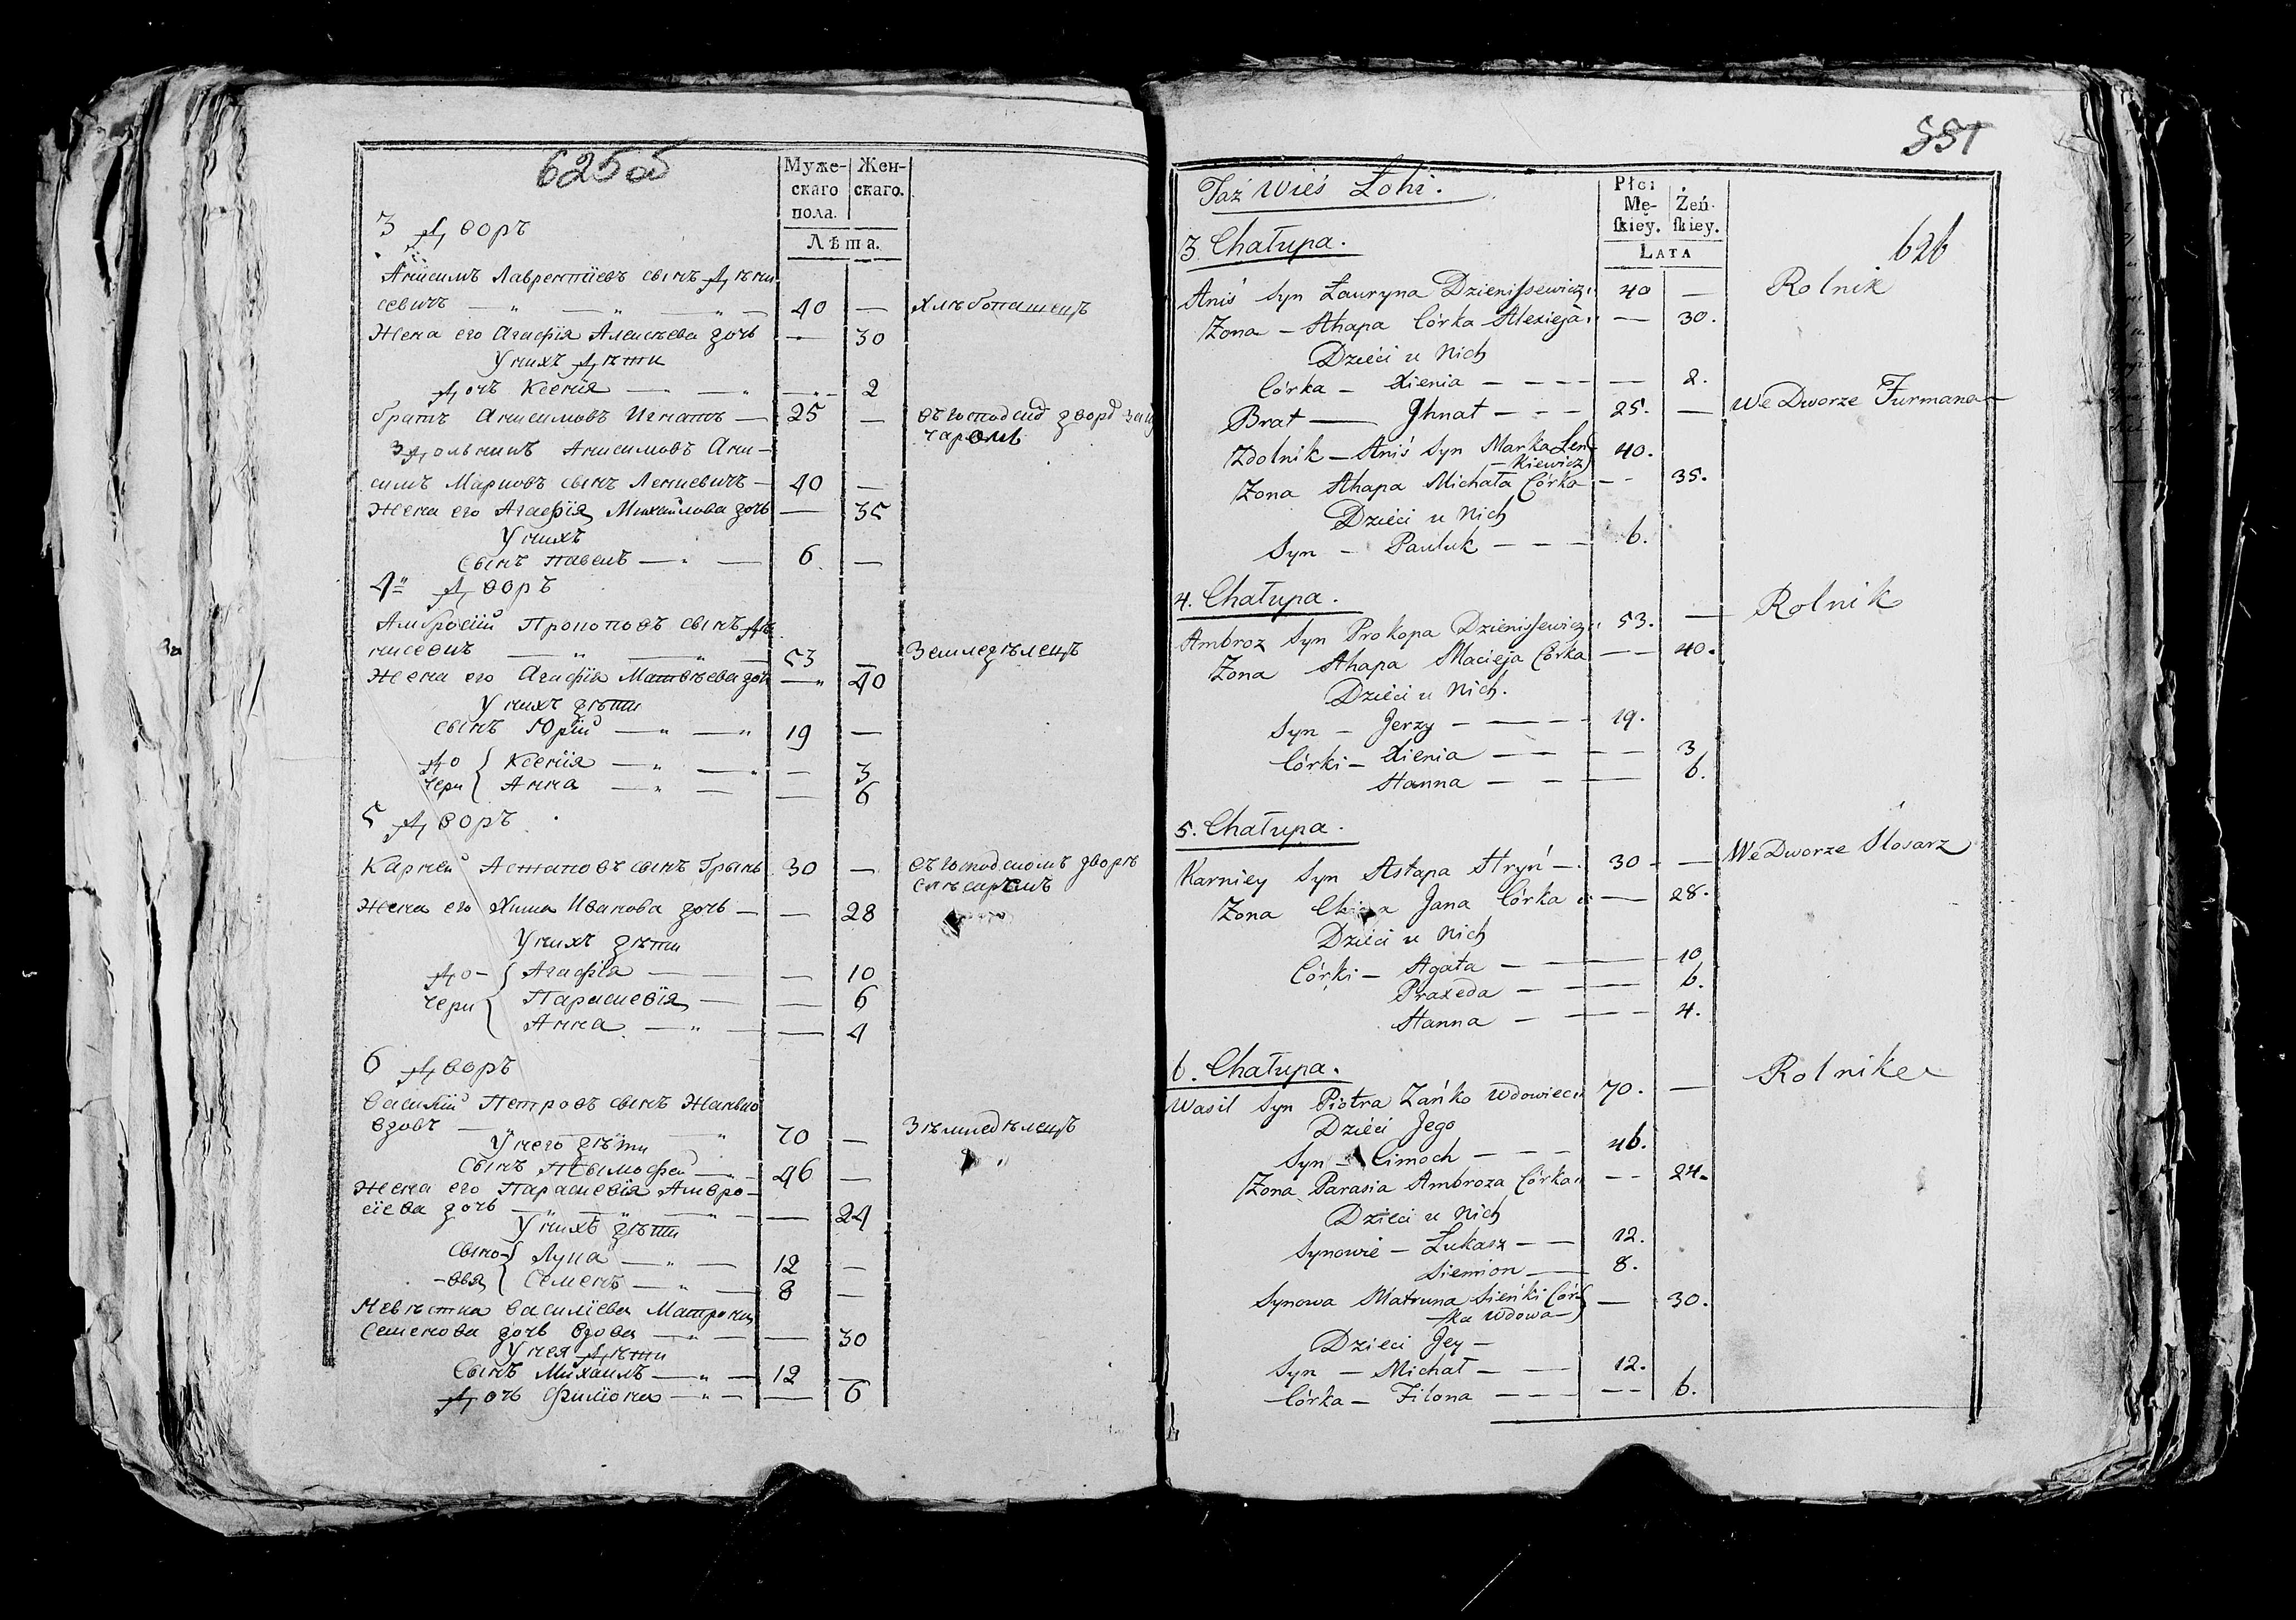 625 об
Муже-
скаго
пола.
Жен-
скаго.
Лѣта.
3 Дворъ
Анисимъ Лаврентіевъ сынъ Дѣни
севичъ — " — " — " — 40 — хлѣбопашецъ
Жена его Агафія Алексѣева дочь — 30
У нихъ Дѣти
Дочь Ксенія — — " — " — 2
братъ Анисимовъ Игнатъ — 25 —
Здольникъ Анисимовъ Ани-
симъ Марковъ сынъ Ленкевичъ — 40 —
Жена его Агафія Михайлова дочь — 35
У нихъ
Сынъ Павелъ — " — 6. —
4й Дворъ
Амбросій Прокоповъ сынъ Дѣ
нисевич — " — " — 53 — Земледѣлецъ
Жена его Агафія Матвѣева доч — " 40
У нихъ дѣти
сынъ Юрій — " — " 19 —
До { Ксенія — " — " — 3
чери { Анна — " — — 6
5 Дворъ
Карней Астаповъ сынъ Грынь 30 — въ господскомъ дворѣ
слѣсаремъ
Жена его Хима Иванова дочь — — 28
У нихъ дѣти
До- { Агафія — — — 10
чери { Параскевія — — 6
Анна — " — — 4
6 Дворъ
Василій Петровъ сынъ Жанько
вдовъ — " — " 70 — Зѣмледѣлецъ
У него дѣти
Сынъ Тымофей — " — 46 —
Жена его Параскевія Амвро-
сіева дочь — " — " — 24
У нихъ дѣти
Сыно- { Лука — " — 12 —
-вья { Семенъ — " — 8 —
Невѣстка Василіева Матрона
Семенова дочь вдова — " — — 30
У нея Дѣти
Сынъ Михаилъ — " — 12 —
Дочь Филіона — " — — 6
551
Taż Wieś Łohi.
Płci
Mę-
skiey.
Żeń-
skiey.
LATA
626
3. Chałupa.
Aniś Syn Łauryna Dzienissewicz " 40 — Rolnik
Żona — Ahapa Córka Alexieja " — 30.
Dzieci u Nich
Córka — Xienia — — — — — 2.
Brat — Jhnat — — — 25. — We Dworze Furmana
Zdolnik — Aniś Syn Marka Len-
-kiewicz 40.
Żona Ahapa Michała Córka — — 35.
Dzieci u Nich
Syn — Pauluk — — — 6.
4. Chałupa.
Ambroz Syn Prokopa Dzienissewicz " 53. — Rolnik
Żona Ahapa Macieja Córka — — 40.
Dzieci u Nich.
Syn — Jerzy — — — — 19.
Córki — Xienia — — — — 3
Hanna — — — 6.
5. Chałupa.
Karniey Syn Astapa Hryń — . 30 — — We Dworze Slosarz
Żona Jana Córka " — 28.
Dzieci u Nich
Córki — Agata — — — 10
Praxeda — — — 6.
Hanna — — — — 4.
6. Chałupa.
Wasil Syn Piotra Żańko Wdowiec " 70. — Rolnik
Dzieci Jego
Syn — Cimoch — — — 46.
Żona Parasia Ambroza Córka " — — 24.
Dzieci u Nich
Synowie — Łukasz — — 12.
Siemion — 8.
Synowa Matruna Sieńki Cór-
-ka Wdowa — 30.
Dzieci Jey —
Syn — Michał — — 12.
Córka — Filona — — — — — 6.